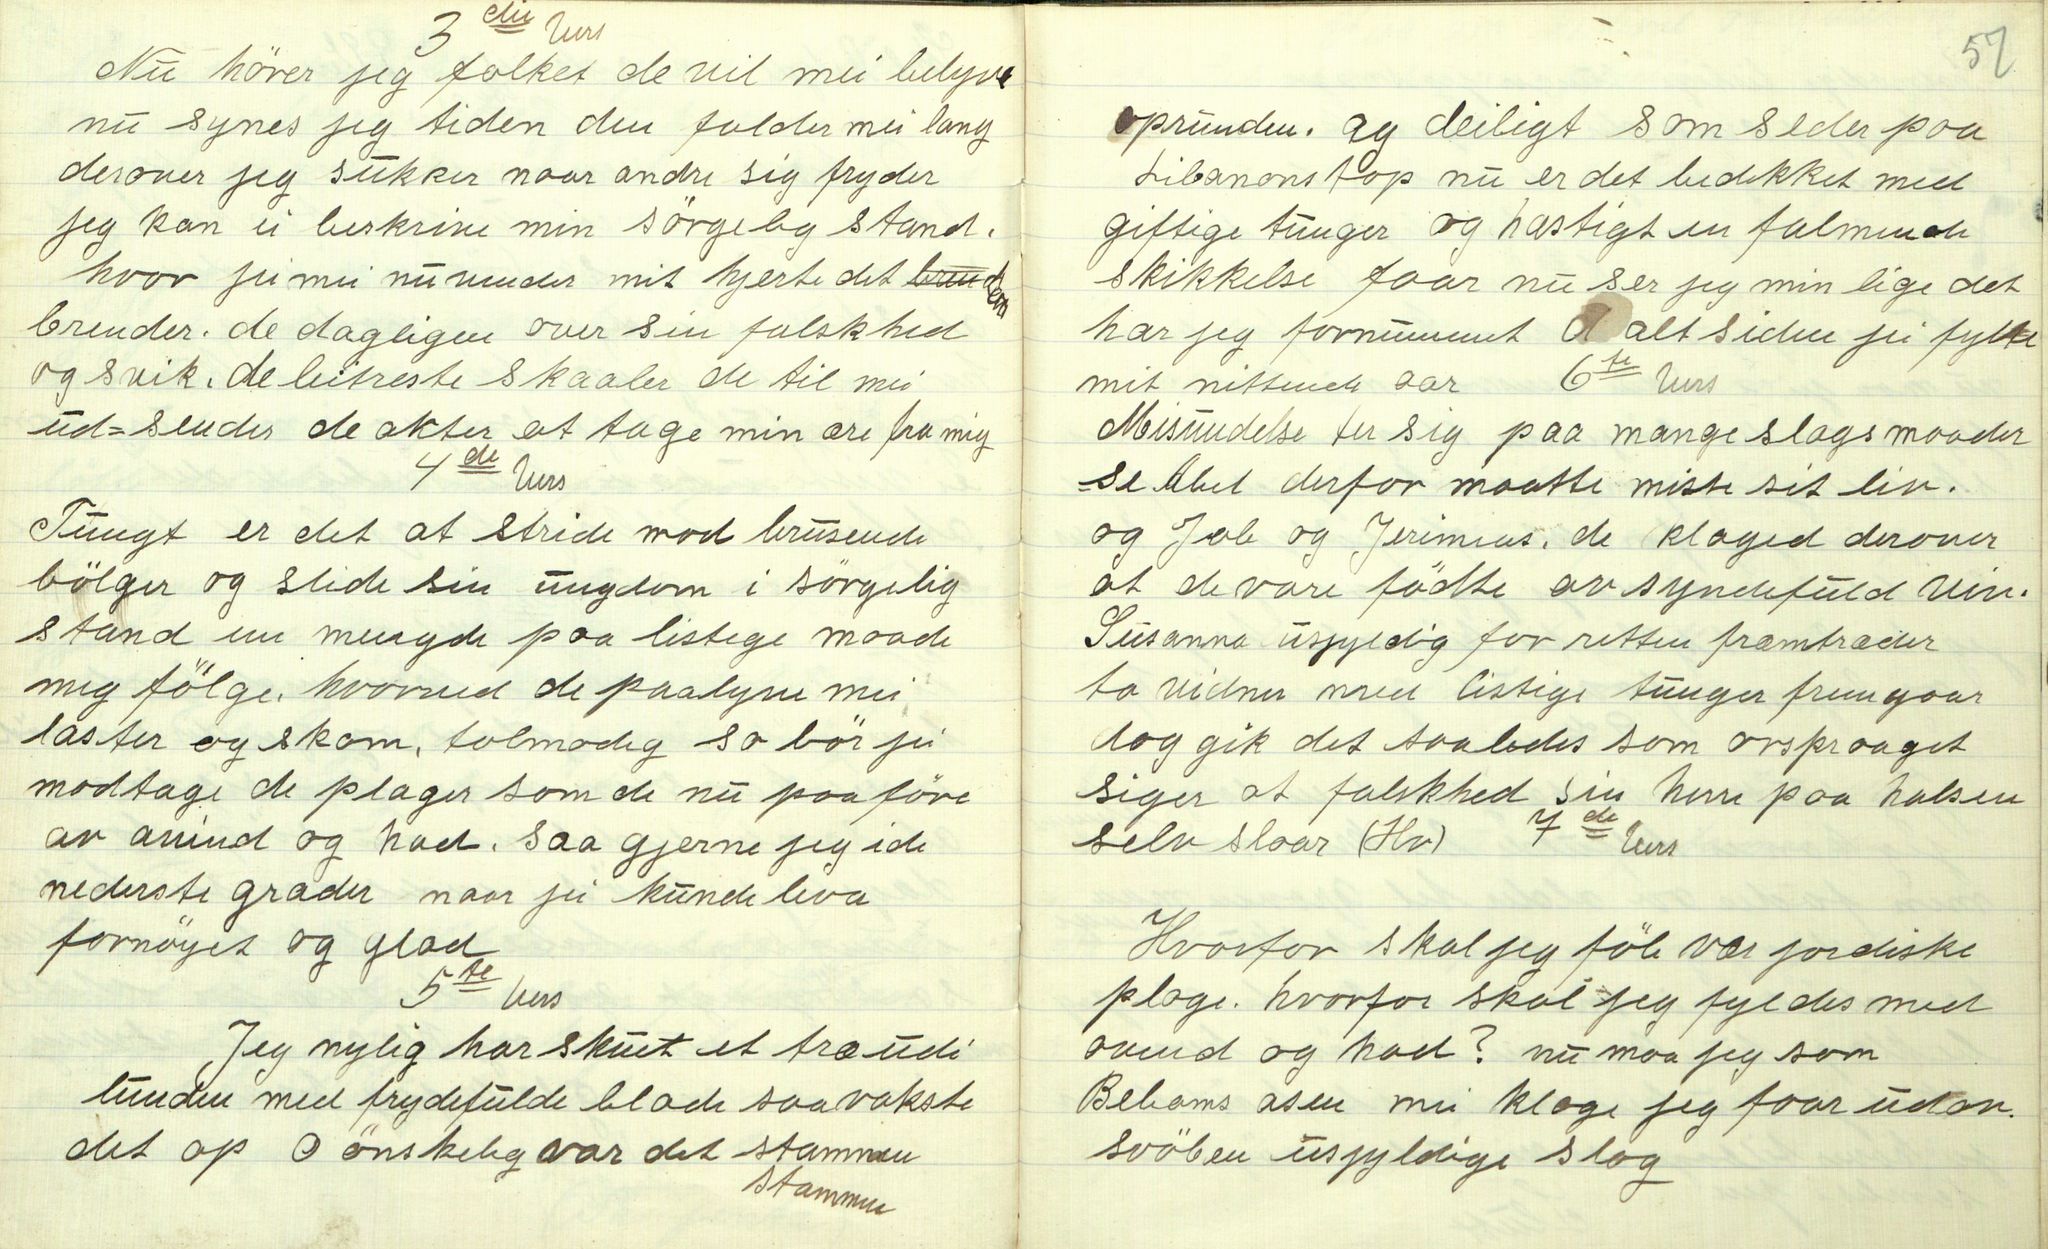 3die Vers
Nu hörer jeg folket de vil mei belyve
nu synes jeg tiden den falder mei lang
derover jeg sukker naar andre sig fryder
jeg kan ei beskrive min sörgelig stand.
hvor jei mei nu vender mit hjerte det
brender. de dagligen över sin falskhed
og svik. de beitreste skaaler de til mei
ud=sender de akter at tage min ære fra mig
4de Vers
Tungt er det at stride mod brusende
bölger og slide sin ungdom i sörgelig
stand en mengde paa listege maade
meg fölge. hvorved de paalyve mei
laster og skam, tolmodig so bör jei
modtage de plager som de nu paaföre
av avind og had. saa gjerne jeg i de
nederste grader naar jei kunde leva
fornöyet og glad
5te Vers
Jeg nylig har skuet et træ udi
lunden med frydefulde blade saa vakste
det op O önskelig var det stammen
stammen
57
oprunden. og deiligt som seder paa
Libanons top nu er det bedekket med
giftige tunger og hastigt en falmende
skikkelse faar nu ser jeg min lige det
har jeg fornummet alt siden jei fylte
mit nittende aar 6te Vers
Misundelse ter sig paa mange slags maader
se Abel derfor maatte miste sit liv.
og Job og Jerimias. de klaged derover
at de vare födte av syndefuld viv.
Susanna usjyldig for retten framtræder
to vidner med listige tunger fremgaar
dog gik det saaledes som orspraaget
siger at falskhed sin herre paa halsen
selv slaar (Hv) 7de Vers
Hvorfor skal jeg föle vær jordiske
plage. hvorfor skal jeg fyldes med
avend og had? nu maa jeg som
Beliams asen mei klage jeg faar udav.
svöben usjyldige slag